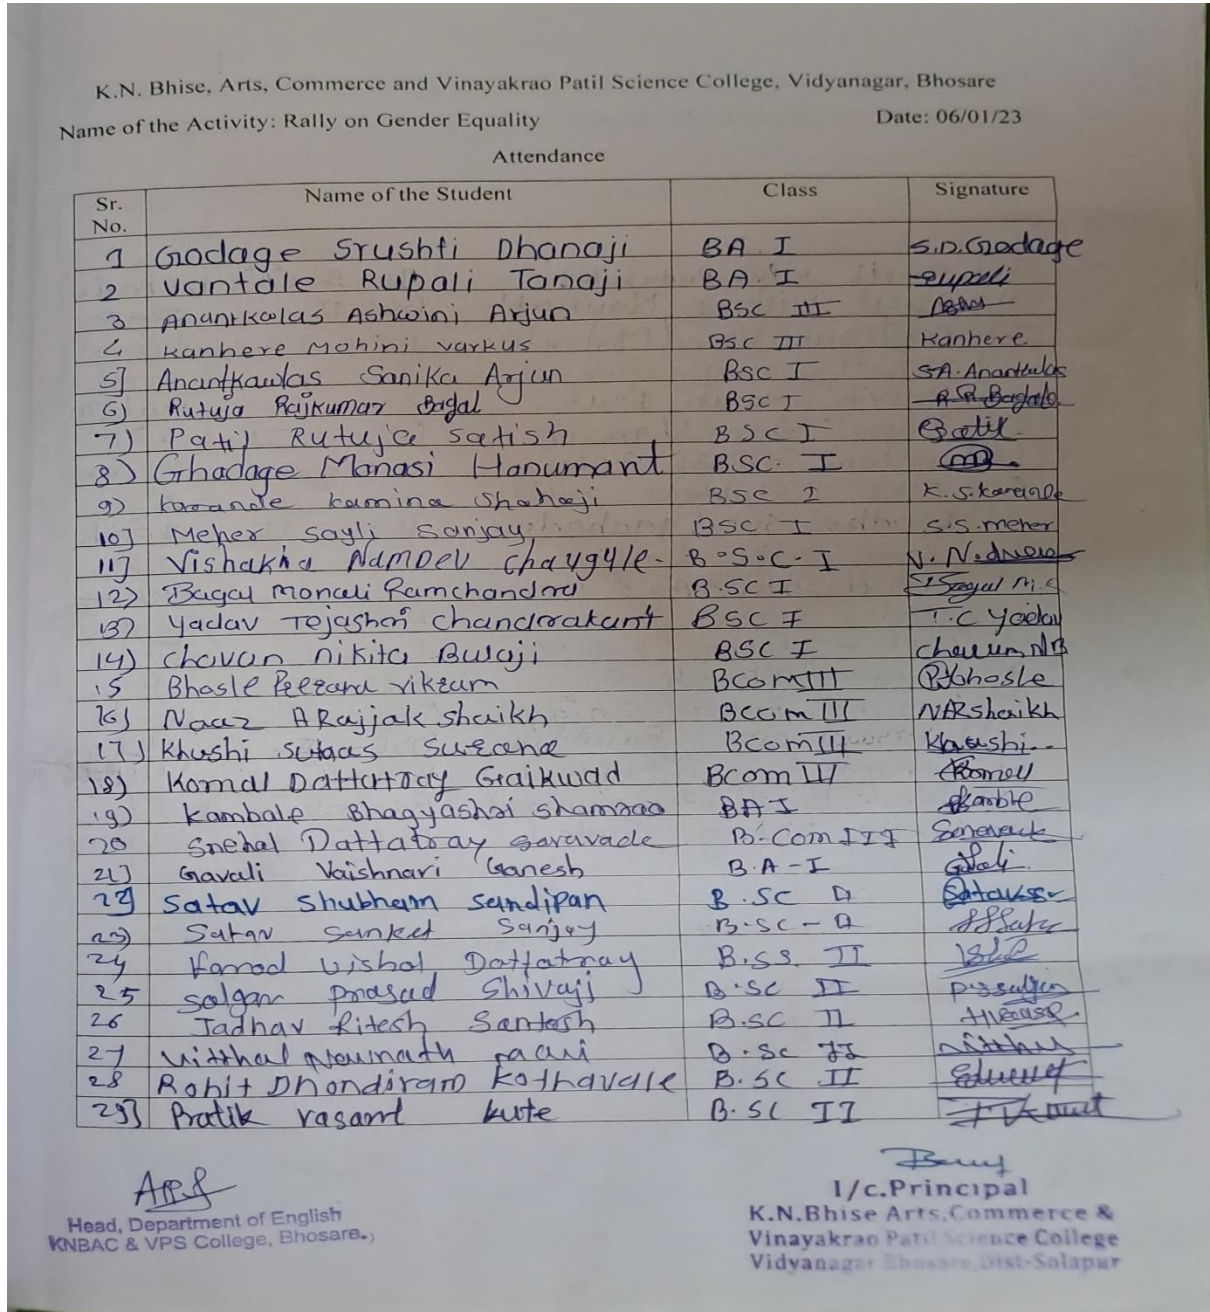 K.N. Bhise, Arts, Commerce and Vinayakrao Patil Science College, Vidyanagar, Bhosare
Name of the Activity: Rally on Gender Equality Date: 06/01/23
Attendance
Sr. No. Name of the Student Class Signature
1 Godage Srushti Dhanaji BA I S.D.Godage
2 Vantale Rupali Tanaji BA I Rupali
3 Anantkwlas Ashwini Arjun BSC III
4 Kanhere Mohini varkus BSC III Kanhere
5] Anantkawlas Sanika Arjun BSC I S.A. Anantkulas
6) Rutuja Rajkumar Bagal BSC I R R Bagale
7) Patil Rutuja satish BSC I Patil
8) Ghadage Manasi Hanumant BSC. I
9) karande kamina Shahaji BSC I K.S.karande
10] Meher sayli sanjay BSC I S.S.meher
11] Vishakha Namdev chaygyle- B.S.C.I
12) Bagal monali Ramchandra B.SC I
13) Yadav Tejashri chandrakant BSC I T.C Yadav
14) chavan nikita Bulaji BSC I
15 Bhosle vikram BCom III Bhosle
16) Naaz ARajjak shaikh BCom III NARshaikh
17) Khushi Surana BCom III Khushi
18) Komal Dattatray Gaikwad BCom III
19) kambale Bhagyashri shamrao BA I
20 Snehal Dattatray saravade B.Com III
21] Gavali Vaishnavi Ganesh B.A-I
22] Satav Shubham Sandipan B.SC II
23) Satav Sanket Sanjay B.SC-II
24 Vishal Dattatray II
25 Salgar Prasad Shivaji B.SC II
26 Jadhav Ritesh Santosh B.SC II
27 Vitthal Navnath B.Sc II
28 Rohit Dhondiram Kothavale B.SC II
29] Pratik vasant kute B.SC II
Head, Department of English
KNBAC & VPS College, Bhosare.
I/c.Principal
K.N.Bhise Arts,Commerce &
Vinayakrao Patil Science College
Vidyanagar Bhosare Dist-Solapur